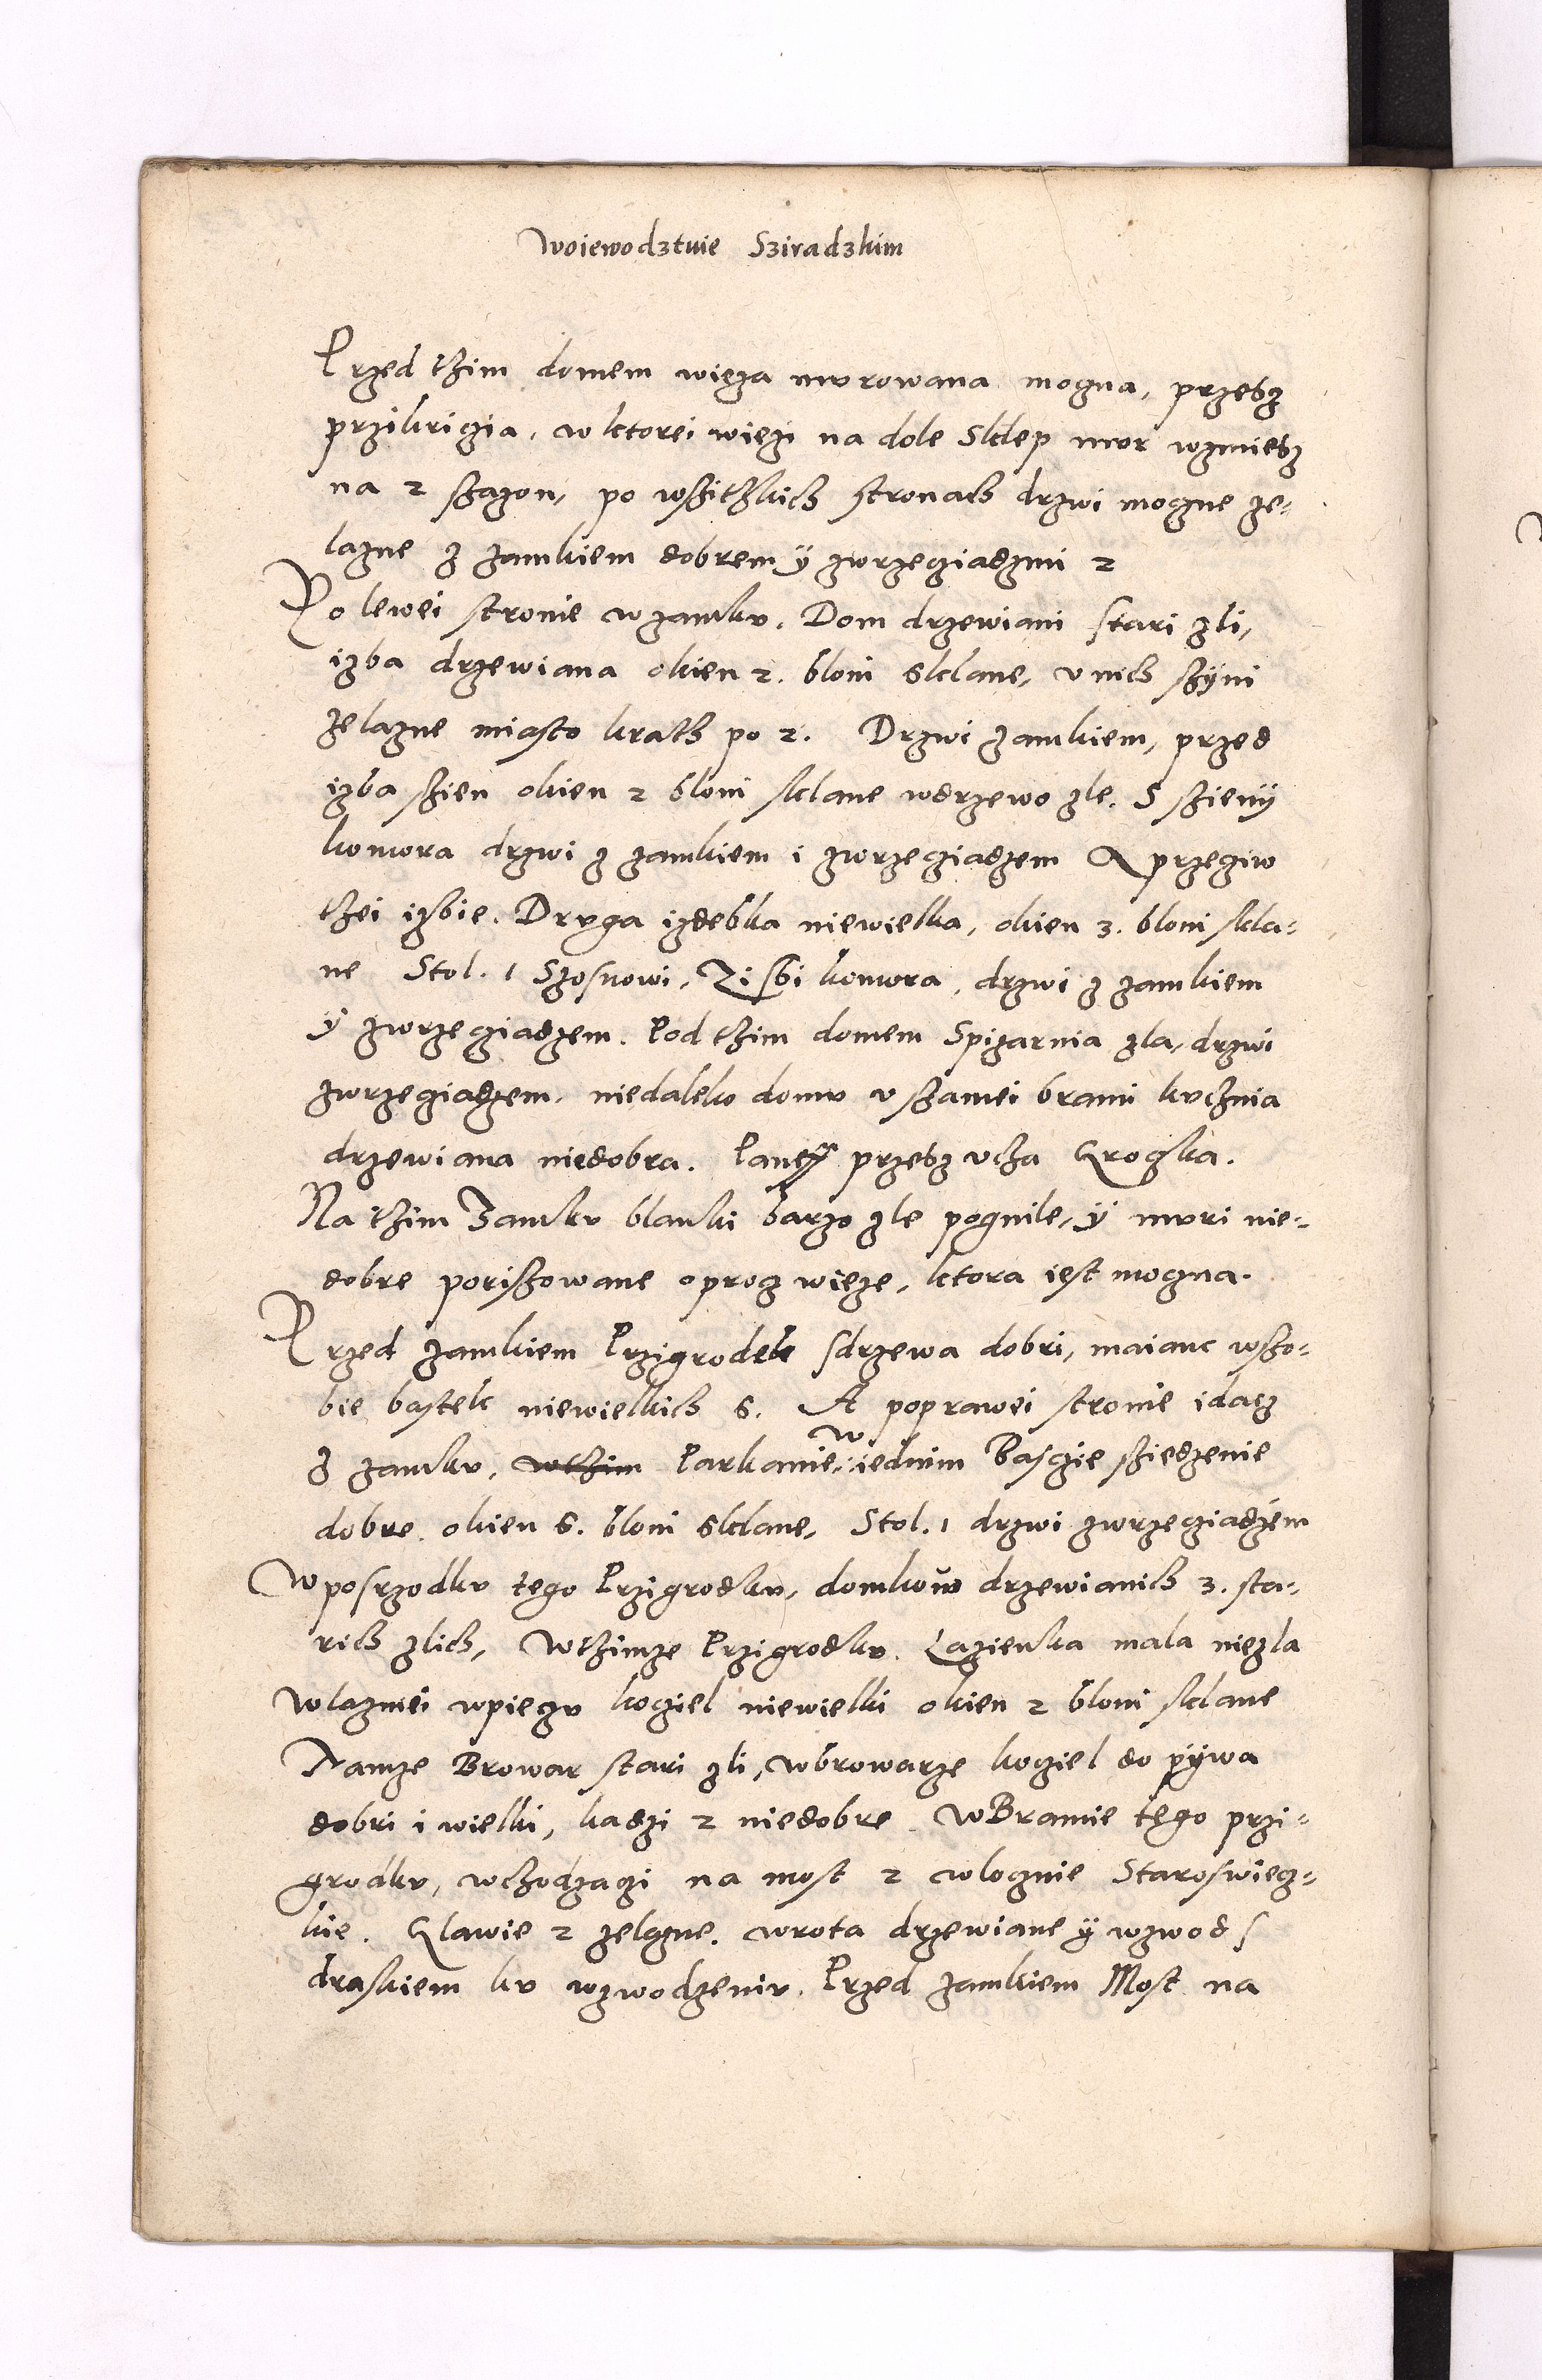 Woiewodztwie Sziradzkim
Przed thim domem wieza murowana mogna, przebz
przikriczia, w ktorei wiezi na dole Sklep mur wzmiebz
na 2 szazon, po wszithkich stronach drzwi mogne ze-
lazne z zamkiem dobrem ÿ zwrzecziadzmi 2
Po lewei stronie w zamku. Dom drzewiani stari zli,
izba drzewiana okien 2. bloni sklane, v nich szÿni
zelazne miasto krath po 2. Drzwi zamkiem, przed
izba szien okien 2 bloni sklane wdrzewo zle. S szienÿ
komora drzwi z zamkiem i zwrzecziadzem A przeciw
thei izbie. Druga izdebka niewielka, okien 3. bloni skla-
ne Stol. 1 Szosnowi, Zisbi komora, drzwi z zamkiem
ÿ zwrzecziadzem. Pod thim domem Spizarnia zla, drzwi
zwrzecziadzem, niedaleko domu v szamei brami kuchnia
drzewiana niedobra. Panew przebz vcha Grogka.
Na thim Zamku blanki barzo zle pognile, ÿ muri nie-
dobre poriszowane oprocz wieze, ktora iest mogna.
Przed zamkiem Przigrodek sdrzewa dobri, maianc wszo-
bie bastek niewielkich 6. A poprawei stronie idacz
z zamku, wthim Parkanie, w iednim Basczie sziedzenie
dobre. okien 6. bloni sklane, Stol. 1 drzwi zwrzecziadzem
W posrzodku tego Przigrodku, domkow drzewianich 3. sta-
rich zlich, Wthimze Przigrodku. Lazienka mala niezla
wlaznei wpieczu kocziel niewielki okien 2 bloni sklane
Tamze Browar stari zli, wbrowarze kocziel do pÿwa
dobri i wielki, kadzi 2 niedobre. WBramie tego przi-
grodku, wchodzaczi na most 2 wlocznie Staroswiecz-
kie. Glawie 2 zelazne. wrota drzewiane ÿ wzwod s
draskiem ku wzwodzeniu. Przed zamkiem Most na